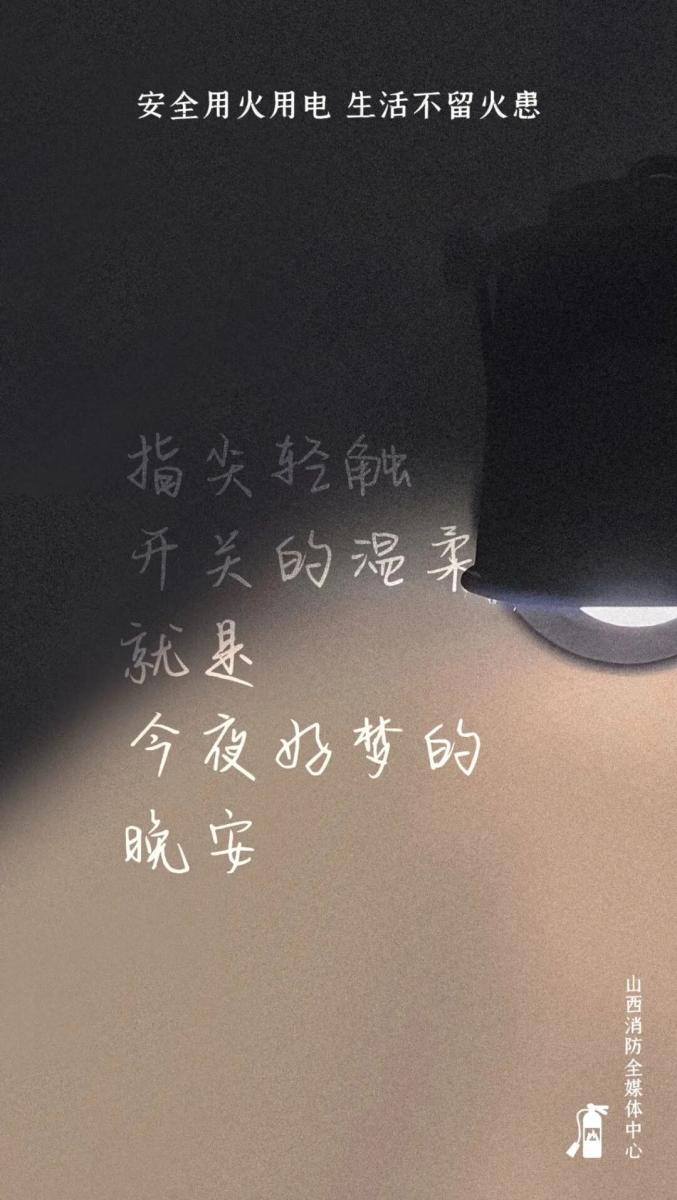 安全用火用电 生活不留火患
指尖轻触
开关的温柔
就是
今夜好梦的
晚安
山西消防全媒体中心